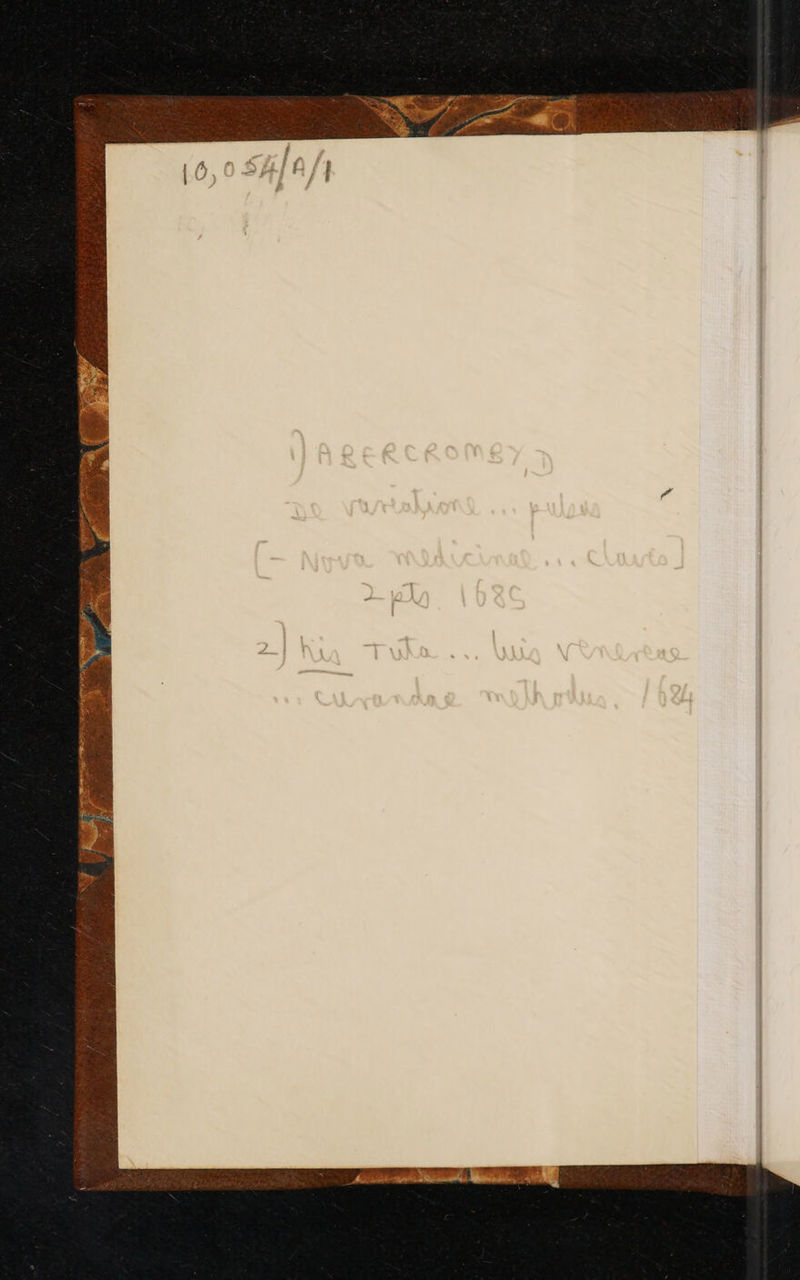 10,054/A/1
1) ABERCROMBY, D
De variatione ... pulsus
[- Nova medicinae ... clavis]
2 pts. 1685
2) his Tuta ... luis venereae
... curandae methodus. 1684